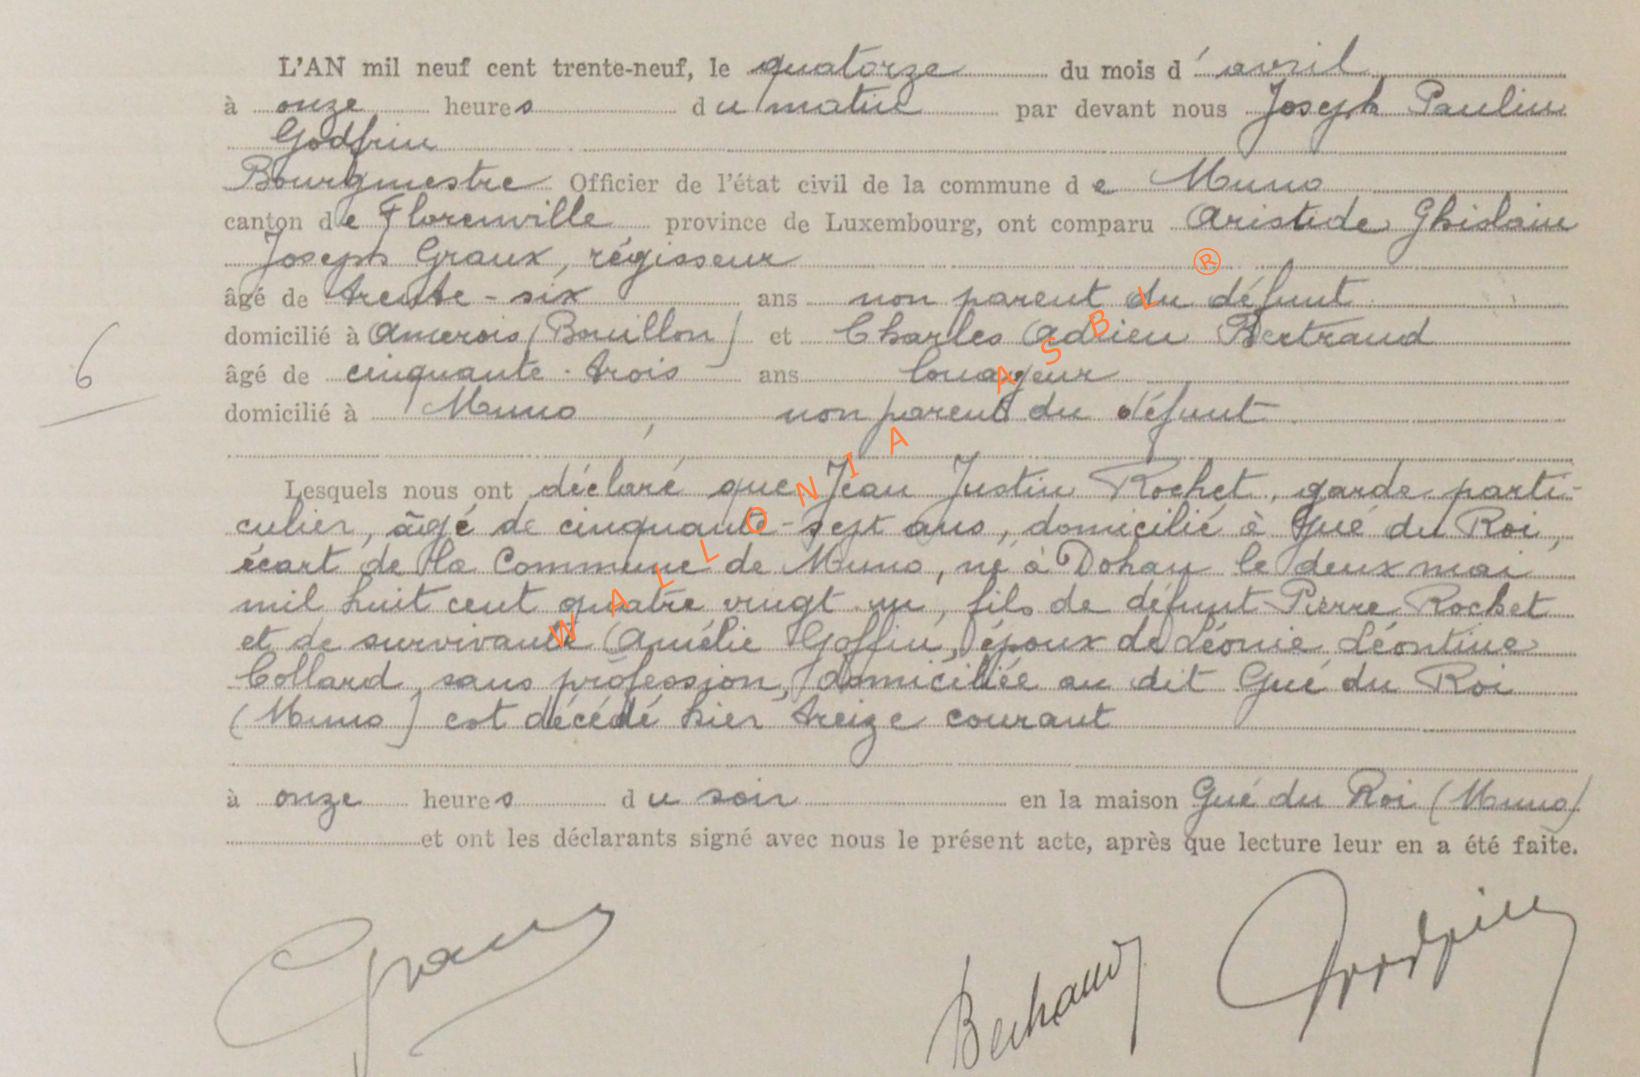 L'AN mil neuf cent trente-neuf, le quatorze du mois d' avril
à onze heures du matin par devant nous Joseph Paulin
Godfrin
Bourgmestre Officier de l'état civil de la commune de Muno
canton de Florenville province de Luxembourg, ont comparu Aristide Ghislain
Joseph Graux, régisseur
âgé de trente-six ans non parent du défunt
domicilié à Amerois (Bouillon) et Charles Adrien Bertrand
6
âgé de cinquante-trois ans louageur
domicilié à Muno, non parent du défunt
Lesquels nous ont déclaré que Jean Justin Rochet, garde parti-
culier, âgé de cinquante-sept ans, domicilié à Gué du Roi,
écart de la Commune de Muno, né à Dohan le deux mai
mil huit cent quatre vingt un, fils de défunt Pierre Rochet
et de survivante Amélie Goffin, époux de Léonie Léontine
Collard, sans profession, domiciliée au dit Gué du Roi
(Muno) est décédé hier treize courant
à onze heures du soir en la maison Gué du Roi (Muno)
et ont les déclarants signé avec nous le présent acte, après que lecture leur en a été faite.
Graux Bertrand Godfrin
WALLONIA ASBL ®